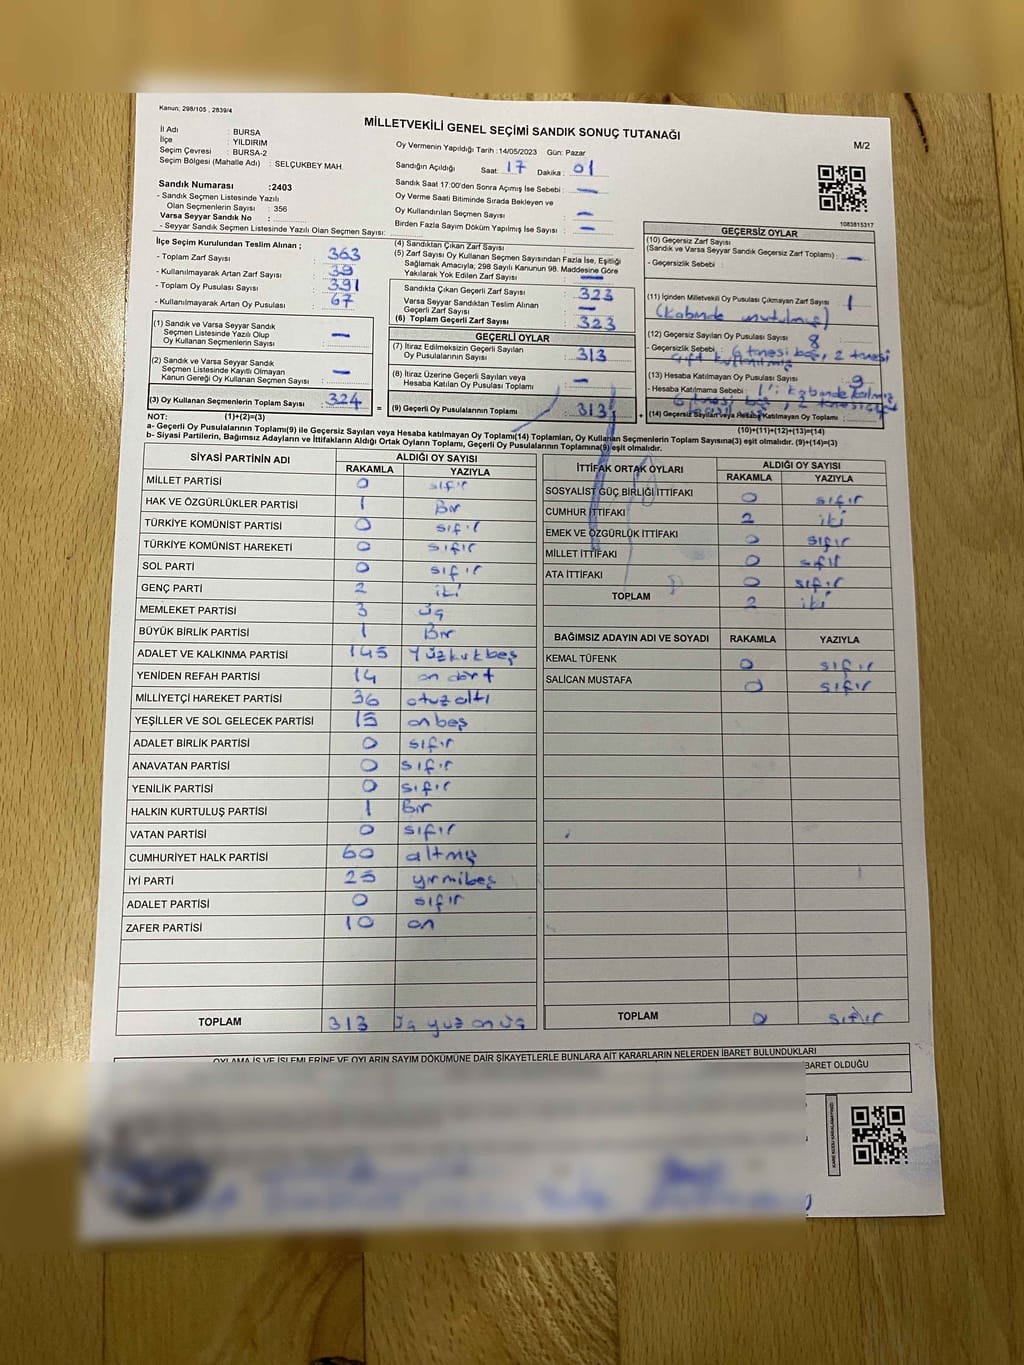 Kanun; 298/105 , 2839/4
MİLLETVEKİLİ GENEL SEÇİMİ SANDIK SONUÇ TUTANAĞI
M/2
İl Adı : BURSA
İlçe : YILDIRIM
Seçim Çevresi : BURSA-2
Seçim Bölgesi (Mahalle Adı) : SELÇUKBEY MAH.
Sandık Numarası :2403
- Sandık Seçmen Listesinde Yazılı
Olan Seçmenlerin Sayısı : 356
Varsa Seyyar Sandık No :
- Seyyar Sandık Seçmen Listesinde Yazılı Olan Seçmen Sayısı:
Oy Vermenin Yapıldığı Tarih :14/05/2023 Gün: Pazar
Sandığın Açıldığı Saat: 17 Dakika : 01
Sandık Saat 17:00'den Sonra Açımış İse Sebebi : —
Oy Verme Saati Bitiminde Sırada Bekleyen ve
Oy Kullandırılan Seçmen Sayısı : —
Birden Fazla Sayım Döküm Yapılmış İse Sayısı : —
1083815317
İlçe Seçim Kurulundan Teslim Alınan ;
- Toplam Zarf Sayısı : 363
- Kullanılmayarak Artan Zarf Sayısı : 39
- Toplam Oy Pusulası Sayısı : 391
- Kullanılmayarak Artan Oy Pusulası : 67
(1) Sandık ve Varsa Seyyar Sandık
Seçmen Listesinde Yazılı Olup
Oy Kullanan Seçmenlerin Sayısı : —
(2) Sandık ve Varsa Seyyar Sandık
Seçmen Listesinde Kayıtlı Olmayan
Kanun Gereği Oy Kullanan Seçmen Sayısı : —
(3) Oy Kullanan Seçmenlerin Toplam Sayısı : 324
(4) Sandıktan Çıkan Zarf Sayısı :
(5) Zarf Sayısı Oy Kullanan Seçmen Sayısından Fazla İse, Eşitliği
Sağlamak Amacıyla; 298 Sayılı Kanunun 98. Maddesine Göre
Yakılarak Yok Edilen Zarf Sayısı : —
Sandıkta Çıkan Geçerli Zarf Sayısı : 323
Varsa Seyyar Sandıktan Teslim Alınan
Geçerli Zarf Sayısı : —
(6) Toplam Geçerli Zarf Sayısı : 323
GEÇERLİ OYLAR
(7) İtiraz Edilmeksizin Geçerli Sayılan
Oy Pusulalarının Sayısı : 313
(8) İtiraz Üzerine Geçerli Sayılan veya
Hesaba Katılan Oy Pusulası Toplamı : —
= (9) Geçerli Oy Pusulalarının Toplamı : 313 +
GEÇERSİZ OYLAR
(10) Geçersiz Zarf Sayısı
(Sandık ve Varsa Seyyar Sandık Geçersiz Zarf Toplamı) : —
- Geçersizlik Sebebi :
(11) İçinden Milletvekili Oy Pusulası Çıkmayan Zarf Sayısı : 1
(Kabinde unutulmuş)
(12) Geçersiz Sayılan Oy Pusulası Sayısı : 8
- Geçersizlik Sebebi : 6 tnesi boş, 2 tnesi
çift kullanılmış
(13) Hesaba Katılmayan Oy Pusulası Sayısı : 9
- Hesaba Katılmama Sebebi : 1'i kabinde kalmış
6 tnesi boş, 2 tnesi çift
(14) Geçersiz Sayılan veya Hesaba Katılmayan Oy Toplamı :
NOT: (1)+(2)=(3)
(10)+(11)+(12)+(13)=(14)
a- Geçerli Oy Pusulalarının Toplamı(9) ile Geçersiz Sayılan veya Hesaba katılmayan Oy Toplamı(14) Toplamları, Oy Kullanan Seçmenlerin Toplam Sayısına(3) eşit olmalıdır. (9)+(14)=(3)
b- Siyasi Partilerin, Bağımsız Adayların ve İttifakların Aldığı Ortak Oyların Toplamı, Geçerli Oy Pusulalarının Toplamına(9) eşit olmalıdır.
SİYASİ PARTİNİN ADI ALDIĞI OY SAYISI
RAKAMLA YAZIYLA
MİLLET PARTİSİ 0 sıfır
HAK VE ÖZGÜRLÜKLER PARTİSİ 1 Bir
TÜRKİYE KOMÜNİST PARTİSİ 0 sıfır
TÜRKİYE KOMÜNİST HAREKETİ 0 sıfır
SOL PARTİ 0 sıfır
GENÇ PARTİ 2 iki
MEMLEKET PARTİSİ 3 üç
BÜYÜK BİRLİK PARTİSİ 1 Bir
ADALET VE KALKINMA PARTİSİ 145 Yüzkırkbeş
YENİDEN REFAH PARTİSİ 14 on dört
MİLLİYETÇİ HAREKET PARTİSİ 36 otuz altı
YEŞİLLER VE SOL GELECEK PARTİSİ 15 onbeş
ADALET BİRLİK PARTİSİ 0 sıfır
ANAVATAN PARTİSİ 0 sıfır
YENİLİK PARTİSİ 0 sıfır
HALKIN KURTULUŞ PARTİSİ 1 Bir
VATAN PARTİSİ 0 sıfır
CUMHURİYET HALK PARTİSİ 60 altmış
İYİ PARTİ 25 yirmibeş
ADALET PARTİSİ 0 sıfır
ZAFER PARTİSİ 10 on
TOPLAM 313 üç yüz on üç
İTTİFAK ORTAK OYLARI ALDIĞI OY SAYISI
RAKAMLA YAZIYLA
SOSYALİST GÜÇ BİRLİĞİ İTTİFAKI 0 sıfır
CUMHUR İTTİFAKI 2 iki
EMEK VE ÖZGÜRLÜK İTTİFAKI 0 sıfır
MİLLET İTTİFAKI 0 sıfır
ATA İTTİFAKI 0 sıfır
TOPLAM 2 iki
BAĞIMSIZ ADAYIN ADI VE SOYADI RAKAMLA YAZIYLA
KEMAL TÜFENK 0 sıfır
SALİCAN MUSTAFA 0 sıfır
TOPLAM 0 sıfır
OYLAMA İŞ VE İŞLEMLERİNE VE OYLARIN SAYIM DÖKÜMÜNE DAİR ŞİKAYETLERLE BUNLARA AİT KARARLARIN NELERDEN İBARET BULUNDUKLARI
İBARET OLDUĞU